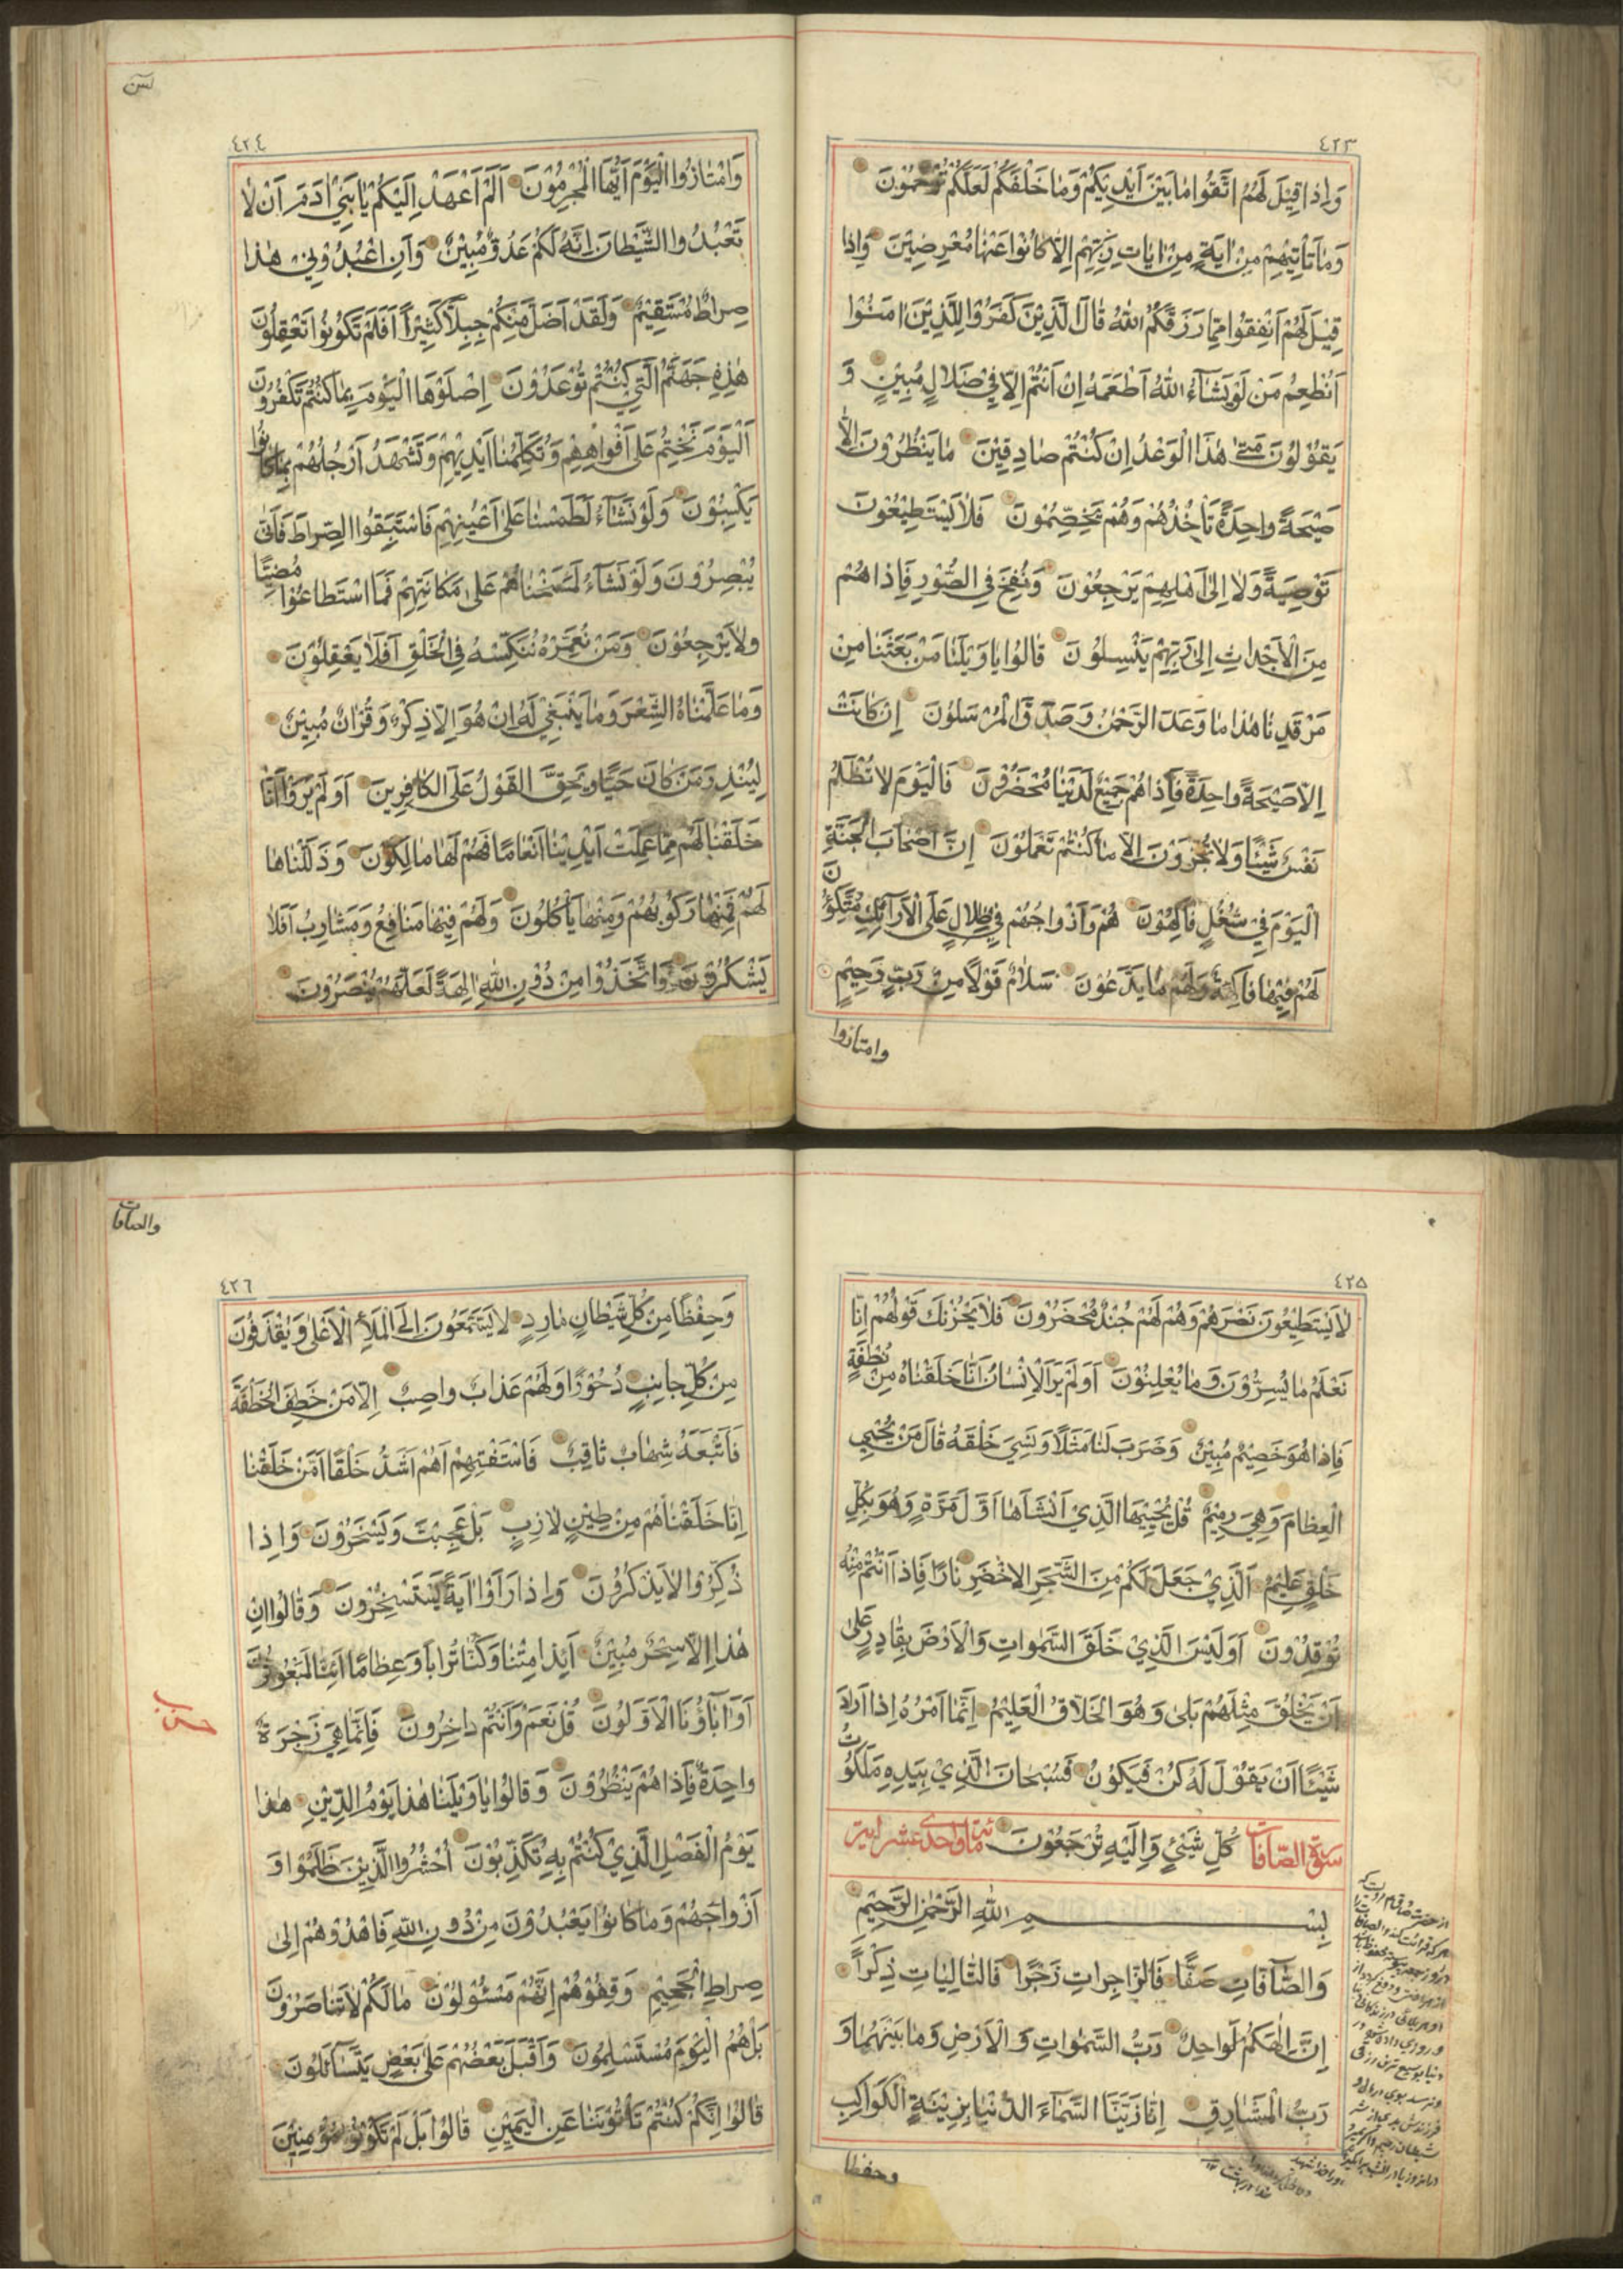 ٤٢٣
وَاِذا قِيْلَ لَهُمُ اتَّقُوا مٰا بَيْنَ اَيْدِيْكُمْ وَمٰا خَلْفَكُمْ لَعَلَّكُمْ تُرْحَمُوْنَ
وَمٰا تَأْتِيْهِمْ مِنْ اٰيَةٍ مِنْ اٰيٰاتِ رَبِّهِمْ اِلّٰا كٰانُوْا عَنْهٰا مُعْرِضِيْنَ وَاِذا
قِيْلَ لَهُمْ اَنْفِقُوْا مِمّٰا رَزَقَكُمُ اللهُ قٰالَ الَّذِيْنَ كَفَرُوْا لِلَّذِيْنَ اٰمَنُوْا
اَنُطْعِمُ مَنْ لَوْ يَشٰآءُ اللهُ اَطْعَمَهُ اِنْ اَنْتُمْ اِلّٰا فِيْ ضَلٰالٍ مُبِيْنٍ وَ
يَقُوْلُوْنَ مَتىٰ هٰذَا الْوَعْدُ اِنْ كُنْتُمْ صٰادِقِيْنَ مٰا يَنْظُرُوْنَ اِلّٰا
صَيْحَةً وٰاحِدَةً تَأْخُذُهُمْ وَهُمْ يَخِصِّمُوْنَ فَلٰا يَسْتَطِيْعُوْنَ
تَوْصِيَةً وَلٰا اِلىٰ اَهْلِهِمْ يَرْجِعُوْنَ وَنُفِخَ فِي الصُّوْرِ فَاِذا هُمْ
مِنَ الْاَجْدٰاثِ اِلىٰ رَبِّهِمْ يَنْسِلُوْنَ قٰالُوْا يٰا وَيْلَنٰا مَنْ بَعَثَنٰا مِنْ
مَرْقَدِنٰا هٰذا مٰا وَعَدَ الرَّحْمٰنُ وَصَدَقَ الْمُرْسَلُوْنَ اِنْ كٰانَتْ
اِلّٰا صَيْحَةً وٰاحِدَةً فَاِذا هُمْ جَمِيْعٌ لَدَيْنٰا مُحْضَرُوْنَ فَالْيَوْمَ لٰا تُظْلَمُ
نَفْسٌ شَيْئًا وَلٰا تُجْزَوْنَ اِلّٰا مٰا كُنْتُمْ تَعْمَلُوْنَ اِنَّ اَصْحٰابَ الْجَنَّةِ
الْيَوْمَ فِيْ شُغُلٍ فٰاكِهُوْنَ هُمْ وَاَزْوٰاجُهُمْ فِيْ ظِلٰالٍ عَلَى الْاَرٰآئِكِ مُتَّكِؤُنَ
لَهُمْ فِيْهٰا فٰاكِهَةٌ وَلَهُمْ مٰا يَدَّعُوْنَ سَلٰامٌ قَوْلًا مِنْ رَبٍّ رَحِيْمٍ
وامتازوا
يس
٤٢٤
وَامْتٰازُوا الْيَوْمَ اَيُّهَا الْمُجْرِمُوْنَ اَلَمْ اَعْهَدْ اِلَيْكُمْ يٰا بَنِيْ اٰدَمَ اَنْ لٰا
تَعْبُدُوا الشَّيْطٰانَ اِنَّهُ لَكُمْ عَدُوٌّ مُبِيْنٌ وَاَنِ اعْبُدُوْنِيْ هٰذا
صِرٰاطٌ مُسْتَقِيْمٌ وَلَقَدْ اَضَلَّ مِنْكُمْ جِبِلًّا كَثِيْرًا اَفَلَمْ تَكُوْنُوْا تَعْقِلُوْنَ
هٰذِهِ جَهَنَّمُ الَّتِيْ كُنْتُمْ تُوْعَدُوْنَ اِصْلَوْهَا الْيَوْمَ بِمٰا كُنْتُمْ تَكْفُرُوْنَ
اَلْيَوْمَ نَخْتِمُ عَلىٰ اَفْوٰاهِهِمْ وَتُكَلِّمُنٰا اَيْدِيْهِمْ وَتَشْهَدُ اَرْجُلُهُمْ بِمٰا كٰانُوْا
يَكْسِبُوْنَ وَلَوْ نَشٰآءُ لَطَمَسْنٰا عَلىٰ اَعْيُنِهِمْ فَاسْتَبَقُوا الصِّرٰاطَ فَاَنّٰى
يُبْصِرُوْنَ وَلَوْ نَشٰآءُ لَمَسَخْنٰاهُمْ عَلىٰ مَكٰانَتِهِمْ فَمَا اسْتَطٰاعُوْا مُضِيًّا
وَلٰا يَرْجِعُوْنَ وَمَنْ نُعَمِّرْهُ نُنَكِّسْهُ فِي الْخَلْقِ اَفَلٰا يَعْقِلُوْنَ
وَمٰا عَلَّمْنٰاهُ الشِّعْرَ وَمٰا يَنْبَغِيْ لَهُ اِنْ هُوَ اِلّٰا ذِكْرٌ وَقُرْاٰنٌ مُبِيْنٌ
لِيُنْذِرَ مَنْ كٰانَ حَيًّا وَيَحِقَّ الْقَوْلُ عَلَى الْكٰافِرِيْنَ اَوَلَمْ يَرَوْا اَنّٰا
خَلَقْنٰا لَهُمْ مِمّٰا عَمِلَتْ اَيْدِيْنٰا اَنْعٰامًا فَهُمْ لَهٰا مٰالِكُوْنَ وَذَلَّلْنٰاهٰا
لَهُمْ فَمِنْهٰا رَكُوْبُهُمْ وَمِنْهٰا يَأْكُلُوْنَ وَلَهُمْ فِيْهٰا مَنٰافِعُ وَمَشٰارِبُ اَفَلٰا
يَشْكُرُوْنَ وَاتَّخَذُوْا مِنْ دُوْنِ اللهِ اٰلِهَةً لَعَلَّهُمْ يُنْصَرُوْنَ
٤٢٥
لٰا يَسْتَطِيْعُوْنَ نَصْرَهُمْ وَهُمْ لَهُمْ جُنْدٌ مُحْضَرُوْنَ فَلٰا يَحْزُنْكَ قَوْلُهُمْ اِنّٰا
نَعْلَمُ مٰا يُسِرُّوْنَ وَمٰا يُعْلِنُوْنَ اَوَلَمْ يَرَ الْاِنْسٰانُ اَنّٰا خَلَقْنٰاهُ مِنْ نُطْفَةٍ
فَاِذا هُوَ خَصِيْمٌ مُبِيْنٌ وَضَرَبَ لَنٰا مَثَلًا وَنَسِيَ خَلْقَهُ قٰالَ مَنْ يُحْيِي
الْعِظٰامَ وَهِيَ رَمِيْمٌ قُلْ يُحْيِيْهَا الَّذِيْ اَنْشَأَهٰا اَوَّلَ مَرَّةٍ وَهُوَ بِكُلِّ
خَلْقٍ عَلِيْمٌ اَلَّذِيْ جَعَلَ لَكُمْ مِنَ الشَّجَرِ الْاَخْضَرِ نٰارًا فَاِذا اَنْتُمْ مِنْهُ
تُوْقِدُوْنَ اَوَلَيْسَ الَّذِيْ خَلَقَ السَّمٰوٰاتِ وَالْاَرْضَ بِقٰادِرٍ عَلىٰ
اَنْ يَخْلُقَ مِثْلَهُمْ بَلىٰ وَهُوَ الْخَلّٰاقُ الْعَلِيْمُ اِنَّمٰا اَمْرُهُ اِذا اَرٰادَ
شَيْئًا اَنْ يَقُوْلَ لَهُ كُنْ فَيَكُوْنُ فَسُبْحٰانَ الَّذِيْ بِيَدِهِ مَلَكُوْتُ
سورة الصّافات كُلِّ شَيْءٍ وَاِلَيْهِ تُرْجَعُوْنَ
بِسْمِ اللهِ الرَّحْمٰنِ الرَّحِيْمِ
وَالصّٰآفّٰاتِ صَفًّا فَالزّٰاجِرٰاتِ زَجْرًا فَالتّٰالِيٰاتِ ذِكْرًا
اِنَّ اِلٰهَكُمْ لَوٰاحِدٌ رَبُّ السَّمٰوٰاتِ وَالْاَرْضِ وَمٰا بَيْنَهُمٰا وَ
رَبُّ الْمَشٰارِقِ اِنّٰا زَيَّنَّا السَّمٰآءَ الدُّنْيٰا بِزِيْنَةٍ الْكَوٰاكِبِ
وحفظا
والصافات
٤٢٦
وَحِفْظًا مِنْ كُلِّ شَيْطٰانٍ مٰارِدٍ لٰا يَسَّمَّعُوْنَ اِلَى الْمَلَأِ الْاَعْلىٰ وَيُقْذَفُوْنَ
مِنْ كُلِّ جٰانِبٍ دُحُوْرًا وَلَهُمْ عَذٰابٌ وٰاصِبٌ اِلّٰا مَنْ خَطِفَ الْخَطْفَةَ
فَاَتْبَعَهُ شِهٰابٌ ثٰاقِبٌ فَاسْتَفْتِهِمْ اَهُمْ اَشَدُّ خَلْقًا اَمْ مَنْ خَلَقْنٰا
اِنّٰا خَلَقْنٰاهُمْ مِنْ طِيْنٍ لٰازِبٍ بَلْ عَجِبْتَ وَيَسْخَرُوْنَ وَاِذا
ذُكِّرُوْا لٰا يَذْكُرُوْنَ وَاِذا رَاَوْا اٰيَةً يَسْتَسْخِرُوْنَ وَقٰالُوْا اِنْ
هٰذا اِلّٰا سِحْرٌ مُبِيْنٌ اَئِذا مِتْنٰا وَكُنّٰا تُرٰابًا وَعِظٰامًا اَئِنّٰا لَمَبْعُوْثُوْنَ
اَوَاٰبٰآؤُنَا الْاَوَّلُوْنَ قُلْ نَعَمْ وَاَنْتُمْ دٰاخِرُوْنَ فَاِنَّمٰا هِيَ زَجْرَةٌ
وٰاحِدَةٌ فَاِذا هُمْ يَنْظُرُوْنَ وَقٰالُوْا يٰا وَيْلَنٰا هٰذا يَوْمُ الدِّيْنِ هٰذا
يَوْمُ الْفَصْلِ الَّذِيْ كُنْتُمْ بِهِ تُكَذِّبُوْنَ اُحْشُرُوا الَّذِيْنَ ظَلَمُوْا وَ
اَزْوٰاجَهُمْ وَمٰا كٰانُوْا يَعْبُدُوْنَ مِنْ دُوْنِ اللهِ فَاهْدُوْهُمْ اِلىٰ
صِرٰاطِ الْجَحِيْمِ وَقِفُوْهُمْ اِنَّهُمْ مَسْئُوْلُوْنَ مٰا لَكُمْ لٰا تَنٰاصَرُوْنَ
بَلْ هُمُ الْيَوْمَ مُسْتَسْلِمُوْنَ وَاَقْبَلَ بَعْضُهُمْ عَلىٰ بَعْضٍ يَتَسٰآئَلُوْنَ
قٰالُوْا اِنَّكُمْ كُنْتُمْ تَأْتُوْنَنٰا عَنِ الْيَمِيْنِ قٰالُوْا بَلْ لَمْ تَكُوْنُوْا مُؤْمِنِيْنَ
حزب